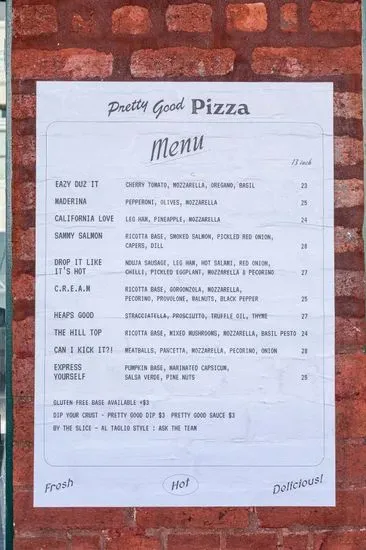 Pretty Good Pizza
Menu
13 inch
EAZY DUZ IT CHERRY TOMATO, MOZZARELLA, OREGANO, BASIL 23
MADERINA PEPPERONI, OLIVES, MOZZARELLA 25
CALIFORNIA LOVE LEG HAM, PINEAPPLE, MOZZARELLA 24
SAMMY SALMON RICOTTA BASE, SMOKED SALMON, PICKLED RED ONION,
CAPERS, DILL 28
DROP IT LIKE NDUJA SAUSAGE, LEG HAM, HOT SALAMI, RED ONION,
IT'S HOT CHILLI, PICKLED EGGPLANT, MOZZARELLA & PECORINO 27
C.R.E.A.M RICOTTA BASE, GORGONZOLA, MOZZARELLA,
PECORINO, PROVOLONE, WALNUTS, BLACK PEPPER 25
HEAPS GOOD STRACCIATELLA, PROSCIUTTO, TRUFFLE OIL, THYME 27
THE HILL TOP RICOTTA BASE, MIXED MUSHROOMS, MOZZARELLA, BASIL PESTO 24
CAN I KICK IT?! MEATBALLS, PANCETTA, MOZZARELLA, PECORINO, ONION 28
EXPRESS PUMPKIN BASE, MARINATED CAPSICUM,
YOURSELF SALSA VERDE, PINE NUTS 25
GLUTEN FREE BASE AVAILABLE +$3
DIP YOUR CRUST - PRETTY GOOD DIP $3 PRETTY GOOD SAUCE $3
BY THE SLICE - AL TAGLIO STYLE : ASK THE TEAM
Fresh Hot Delicious!